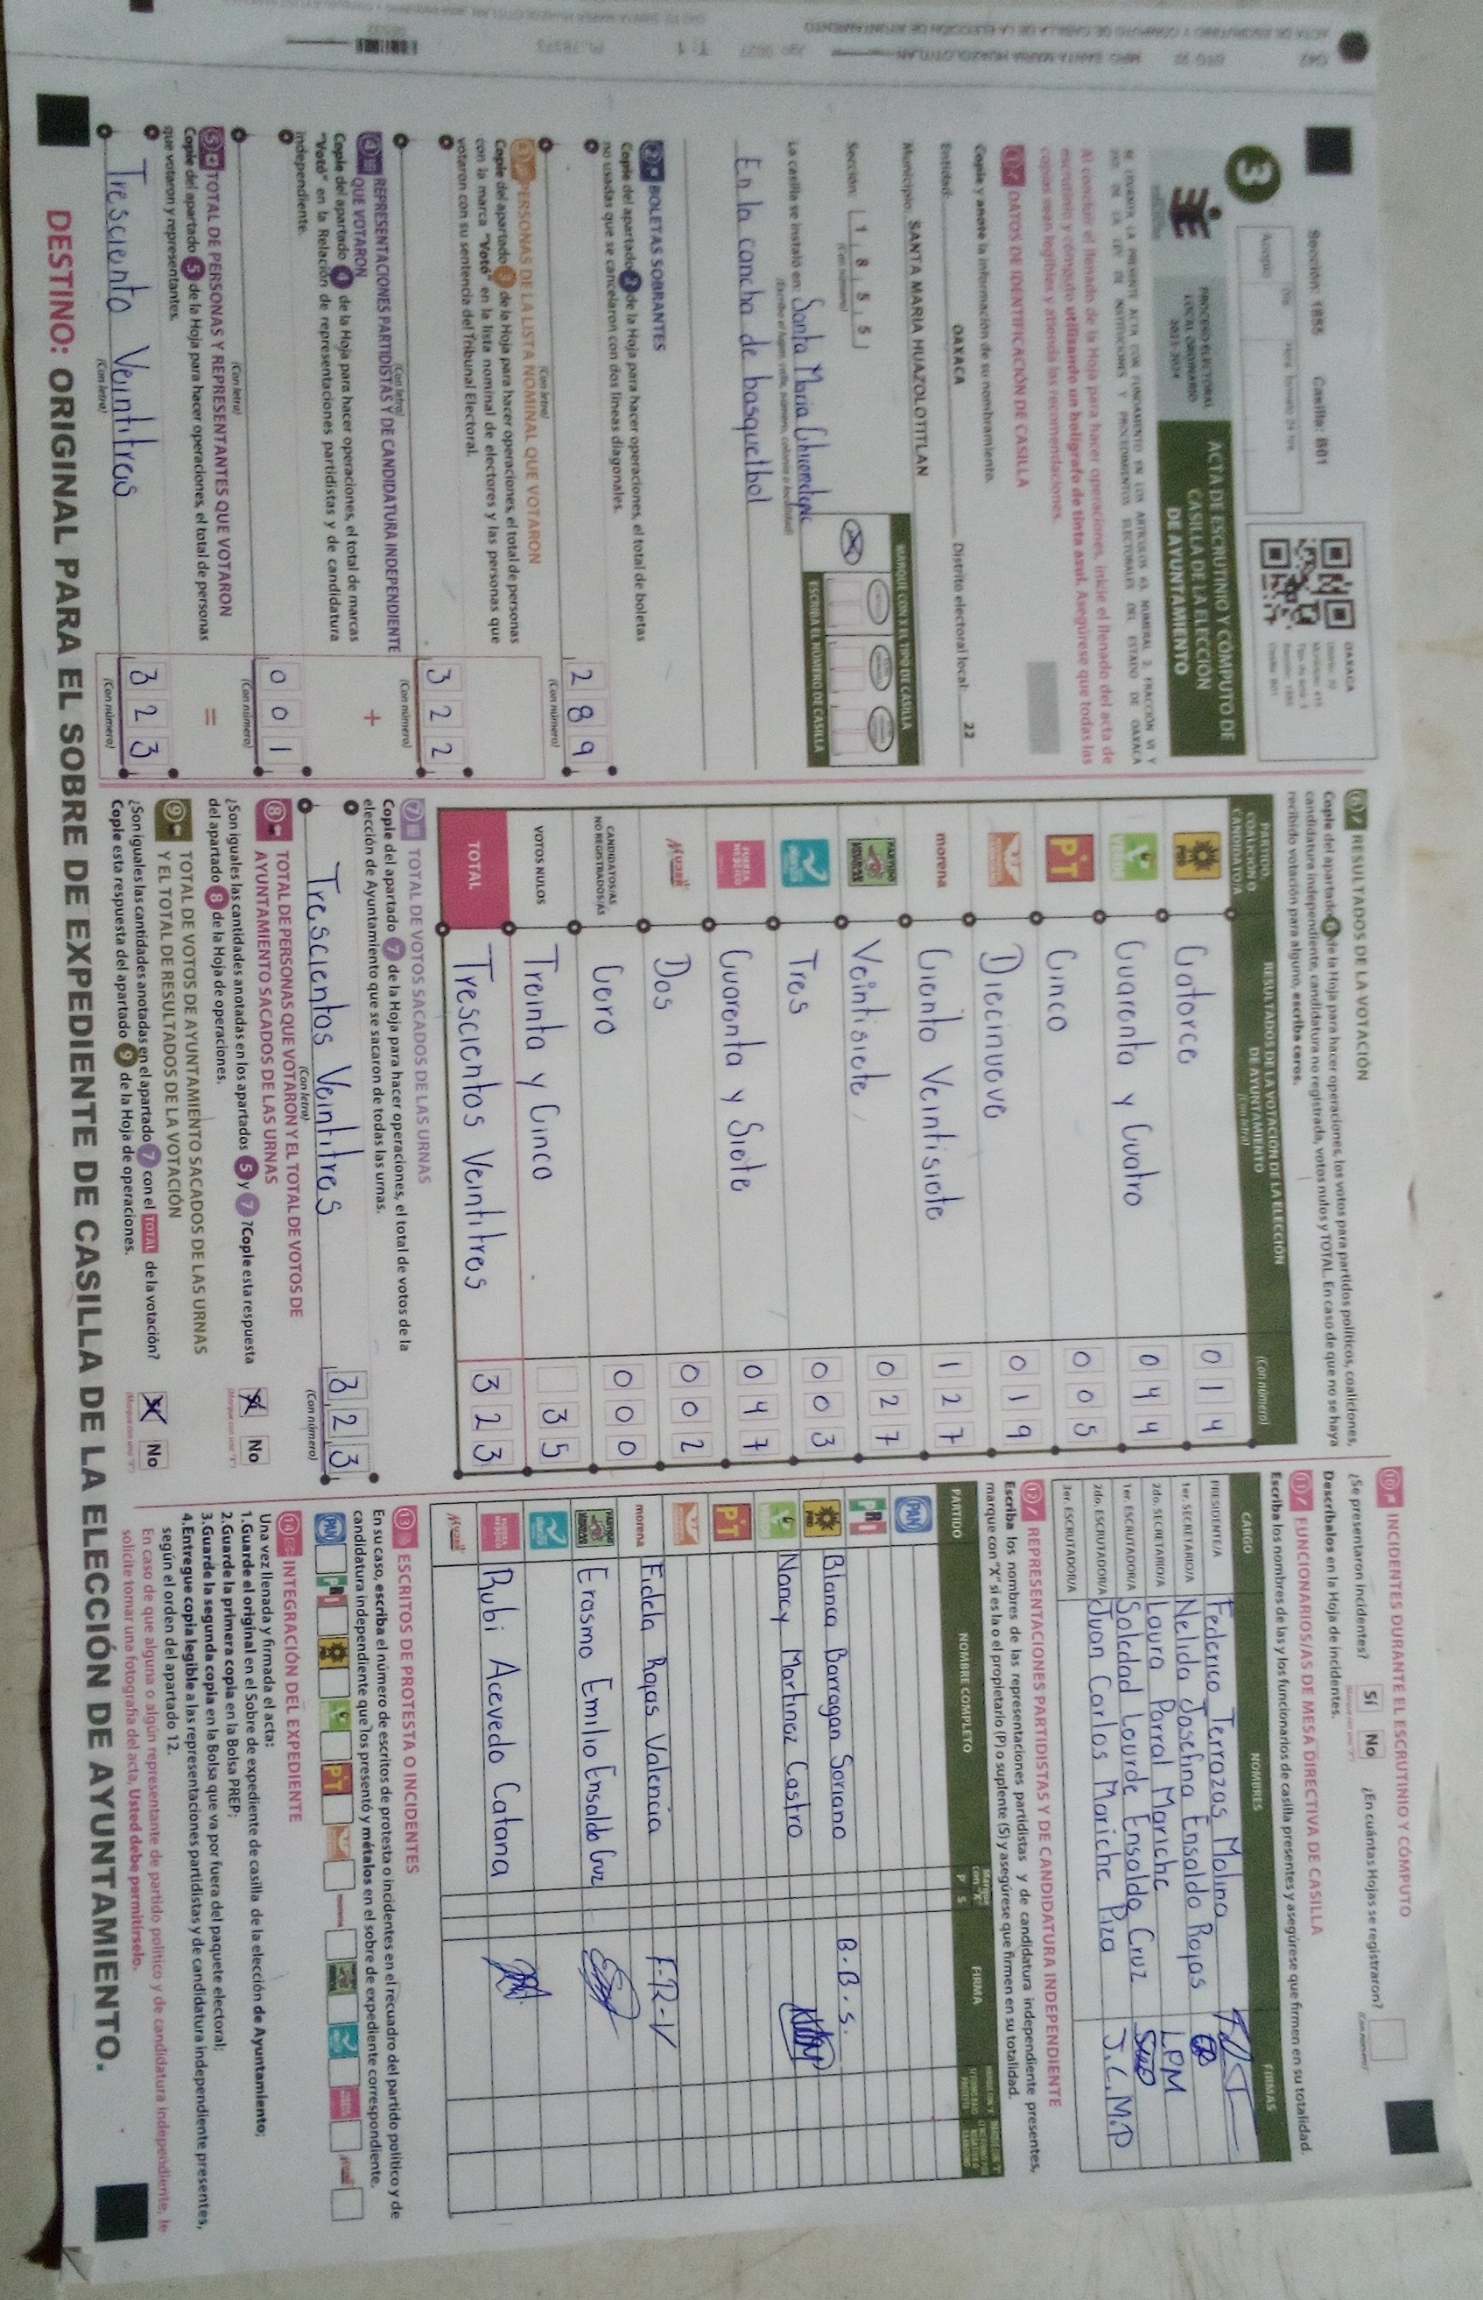 Sección: 1855 Casilla: B01
OAXACA
3
PROCESO ELECTORAL
LOCAL ORDINARIO
2023-2024
ACTA DE ESCRUTINIO Y CÓMPUTO DE
CASILLA DE LA ELECCIÓN
DE AYUNTAMIENTO
Al concluir el llenado de la Hoja para hacer operaciones, inicie el llenado del acta de
escrutinio y cómputo utilizando un bolígrafo de tinta azul. Asegúrese que todas las
copias sean legibles y atienda las recomendaciones.
1 DATOS DE IDENTIFICACIÓN DE CASILLA
Copie y anote la información de su nombramiento.
Entidad: OAXACA Distrito electoral local: 22
Municipio: SANTA MARIA HUAZOLOTITLAN
Sección: 1 8 5 5
(Con número)
MARQUE CON X EL TIPO DE CASILLA
ESCRIBA EL NÚMERO DE CASILLA
La casilla se instaló en: Santa Maria Chicometepec
En la cancha de basquetbol
2 BOLETAS SOBRANTES
Copie del apartado 2 de la Hoja para hacer operaciones, el total de boletas
no usadas que se cancelaron con dos líneas diagonales.
2 8 9
(Con letra) (Con número)
3 PERSONAS DE LA LISTA NOMINAL QUE VOTARON
Copie del apartado 3 de la Hoja para hacer operaciones, el total de personas
con la marca "Votó" en la lista nominal de electores y las personas que
votaron con su sentencia del Tribunal Electoral.
3 2 2
(Con letra) (Con número)
+
4 REPRESENTACIONES PARTIDISTAS Y DE CANDIDATURA INDEPENDIENTE
QUE VOTARON
Copie del apartado 4 de la Hoja para hacer operaciones, el total de marcas
"Votó" en la Relación de representaciones partidistas y de candidatura
independiente.
0 0 1
(Con letra) (Con número)
=
5 TOTAL DE PERSONAS Y REPRESENTANTES QUE VOTARON
Copie del apartado 5 de la Hoja para hacer operaciones, el total de personas
que votaron y representantes.
Tresciento Veintitres 3 2 3
(Con letra) (Con número)
6 RESULTADOS DE LA VOTACIÓN
Copie del apartado 6 de la Hoja para hacer operaciones, los votos para partidos políticos, coaliciones,
candidatura independiente, candidatura no registrada, votos nulos y TOTAL. En caso de que no se haya
recibido votación para alguno, escriba ceros.
PARTIDO,
COALICIÓN O
CANDIDATO/A
RESULTADOS DE LA VOTACIÓN DE LA ELECCIÓN
DE AYUNTAMIENTO
(Con letra) (Con número)
PRD Catorce 0 1 4
VERDE Cuarenta y Cuatro 0 4 4
PT Cinco 0 0 5
Diecinueve 0 1 9
morena Ciento Veintisiete 1 2 7
Veintisiete 0 2 7
Tres 0 0 3
FUERZA MÉXICO Cuarenta y Siete 0 4 7
Mujer Dos 0 0 2
CANDIDATOS/AS
NO REGISTRADOS/AS Cero 0 0 0
VOTOS NULOS Treinta y Cinco 3 5
TOTAL Trescientos Veintitres 3 2 3
7 TOTAL DE VOTOS SACADOS DE LAS URNAS
Copie del apartado 7 de la Hoja para hacer operaciones, el total de votos de la
elección de Ayuntamiento que se sacaron de todas las urnas.
Trescientos Veintitres 3 2 3
(Con letra) (Con número)
8 TOTAL DE PERSONAS QUE VOTARON Y EL TOTAL DE VOTOS DE
AYUNTAMIENTO SACADOS DE LAS URNAS
¿Son iguales las cantidades anotadas en los apartados 5 y 7 ? Copie esta respuesta
del apartado 8 de la Hoja de operaciones.
Sí No
9 TOTAL DE VOTOS DE AYUNTAMIENTO SACADOS DE LAS URNAS
Y EL TOTAL DE RESULTADOS DE LA VOTACIÓN
¿Son iguales las cantidades anotadas en el apartado 7 con el TOTAL de la votación?
Copie esta respuesta del apartado 9 de la Hoja de operaciones.
Sí No
10 INCIDENTES DURANTE EL ESCRUTINIO Y CÓMPUTO
¿Se presentaron incidentes? Sí No ¿En cuántas Hojas se registraron?
Descríbalos en la Hoja de incidentes.
11 FUNCIONARIOS/AS DE MESA DIRECTIVA DE CASILLA
Escriba los nombres de las y los funcionarios de casilla presentes y asegúrese que firmen en su totalidad.
CARGO NOMBRES FIRMAS
PRESIDENTE/A Federico Terrazas Molina
1er. SECRETARIO/A Nelida Josefina Ensaldo Rojas
2do. SECRETARIO/A Laura Parral Mariche LPM
1er. ESCRUTADOR/A Soledad Lourde Ensaldo Cruz
2do. ESCRUTADOR/A Juan Carlos Mariche Piza J.C.M.P
3er. ESCRUTADOR/A
12 REPRESENTACIONES PARTIDISTAS Y DE CANDIDATURA INDEPENDIENTE
Escriba los nombres de las representaciones partidistas y de candidatura independiente presentes,
marque con "X" si es la o el propietario (P) o suplente (S) y asegúrese que firmen en su totalidad.
PARTIDO NOMBRE COMPLETO P S FIRMA
PAN
PRI
PRD Blanca Barragan Soriano B.B.S.
VERDE Nancy Martinez Castro
PT
morena Fidela Rojas Valencia F.R.V
Erasmo Emilio Ensaldo Cruz
FUERZA MÉXICO Rubi Acevedo Catana
Mujer
13 ESCRITOS DE PROTESTA O INCIDENTES
En su caso, escriba el número de escritos de protesta o incidentes en el recuadro del partido político y de
candidatura independiente que los presentó y métalos en el sobre de expediente correspondiente.
PAN PRI PRD PT morena
14 INTEGRACIÓN DEL EXPEDIENTE
Una vez llenada y firmada el acta:
1.Guarde el original en el Sobre de expediente de casilla de la elección de Ayuntamiento;
2.Guarde la primera copia en la Bolsa PREP;
3.Guarde la segunda copia en la Bolsa que va por fuera del paquete electoral;
4.Entregue copia legible a las representaciones partidistas y de candidatura independiente presentes,
según el orden del apartado 12.
En caso de que alguna o algún representante de partido político y de candidatura independiente, le
solicite tomar una fotografía del acta, Usted debe permitírselo.
DESTINO: ORIGINAL PARA EL SOBRE DE EXPEDIENTE DE CASILLA DE LA ELECCIÓN DE AYUNTAMIENTO.